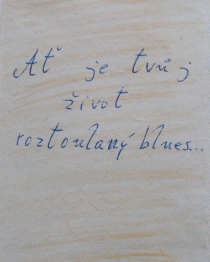 Ať je tvůj
život
roztoulaný blues...